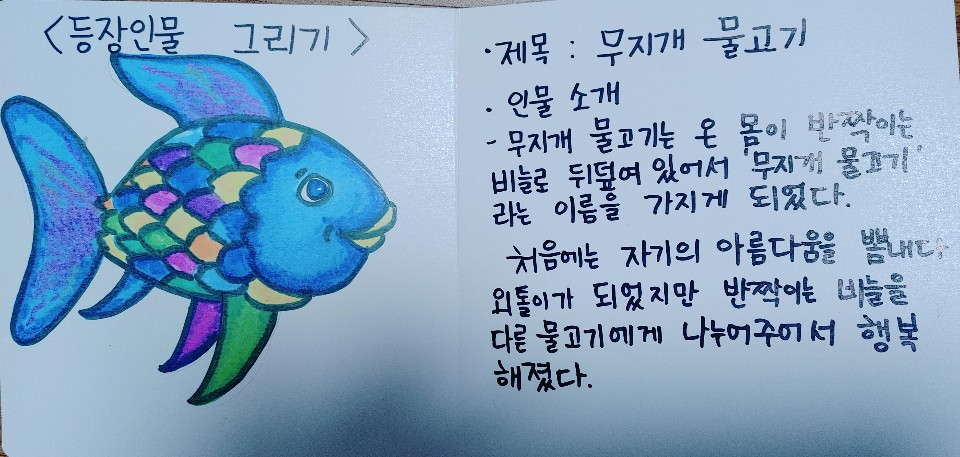 <등장인물 그리기>
· 제목 : 무지개 물고기
· 인물 소개
- 무지개 물고기는 온 몸이 반짝이는
비늘로 뒤덮여 있어서 '무지개 물고기'
라는 이름을 가지게 되었다.
처음에는 자기의 아름다움을 뽐내다
외톨이가 되었지만 반짝이는 비늘을
다른 물고기에게 나누어주어서 행복
해졌다.